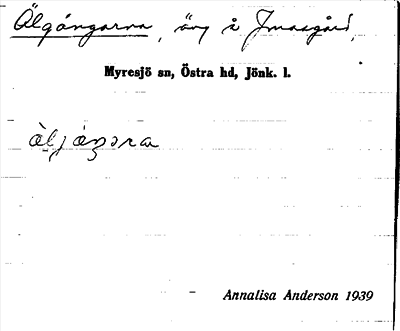 Älgångarna, äng å Jonsgård,
Myresjö sn, Östra hd, Jönk. l.
àljáŋəra
Annalisa Anderson 1939